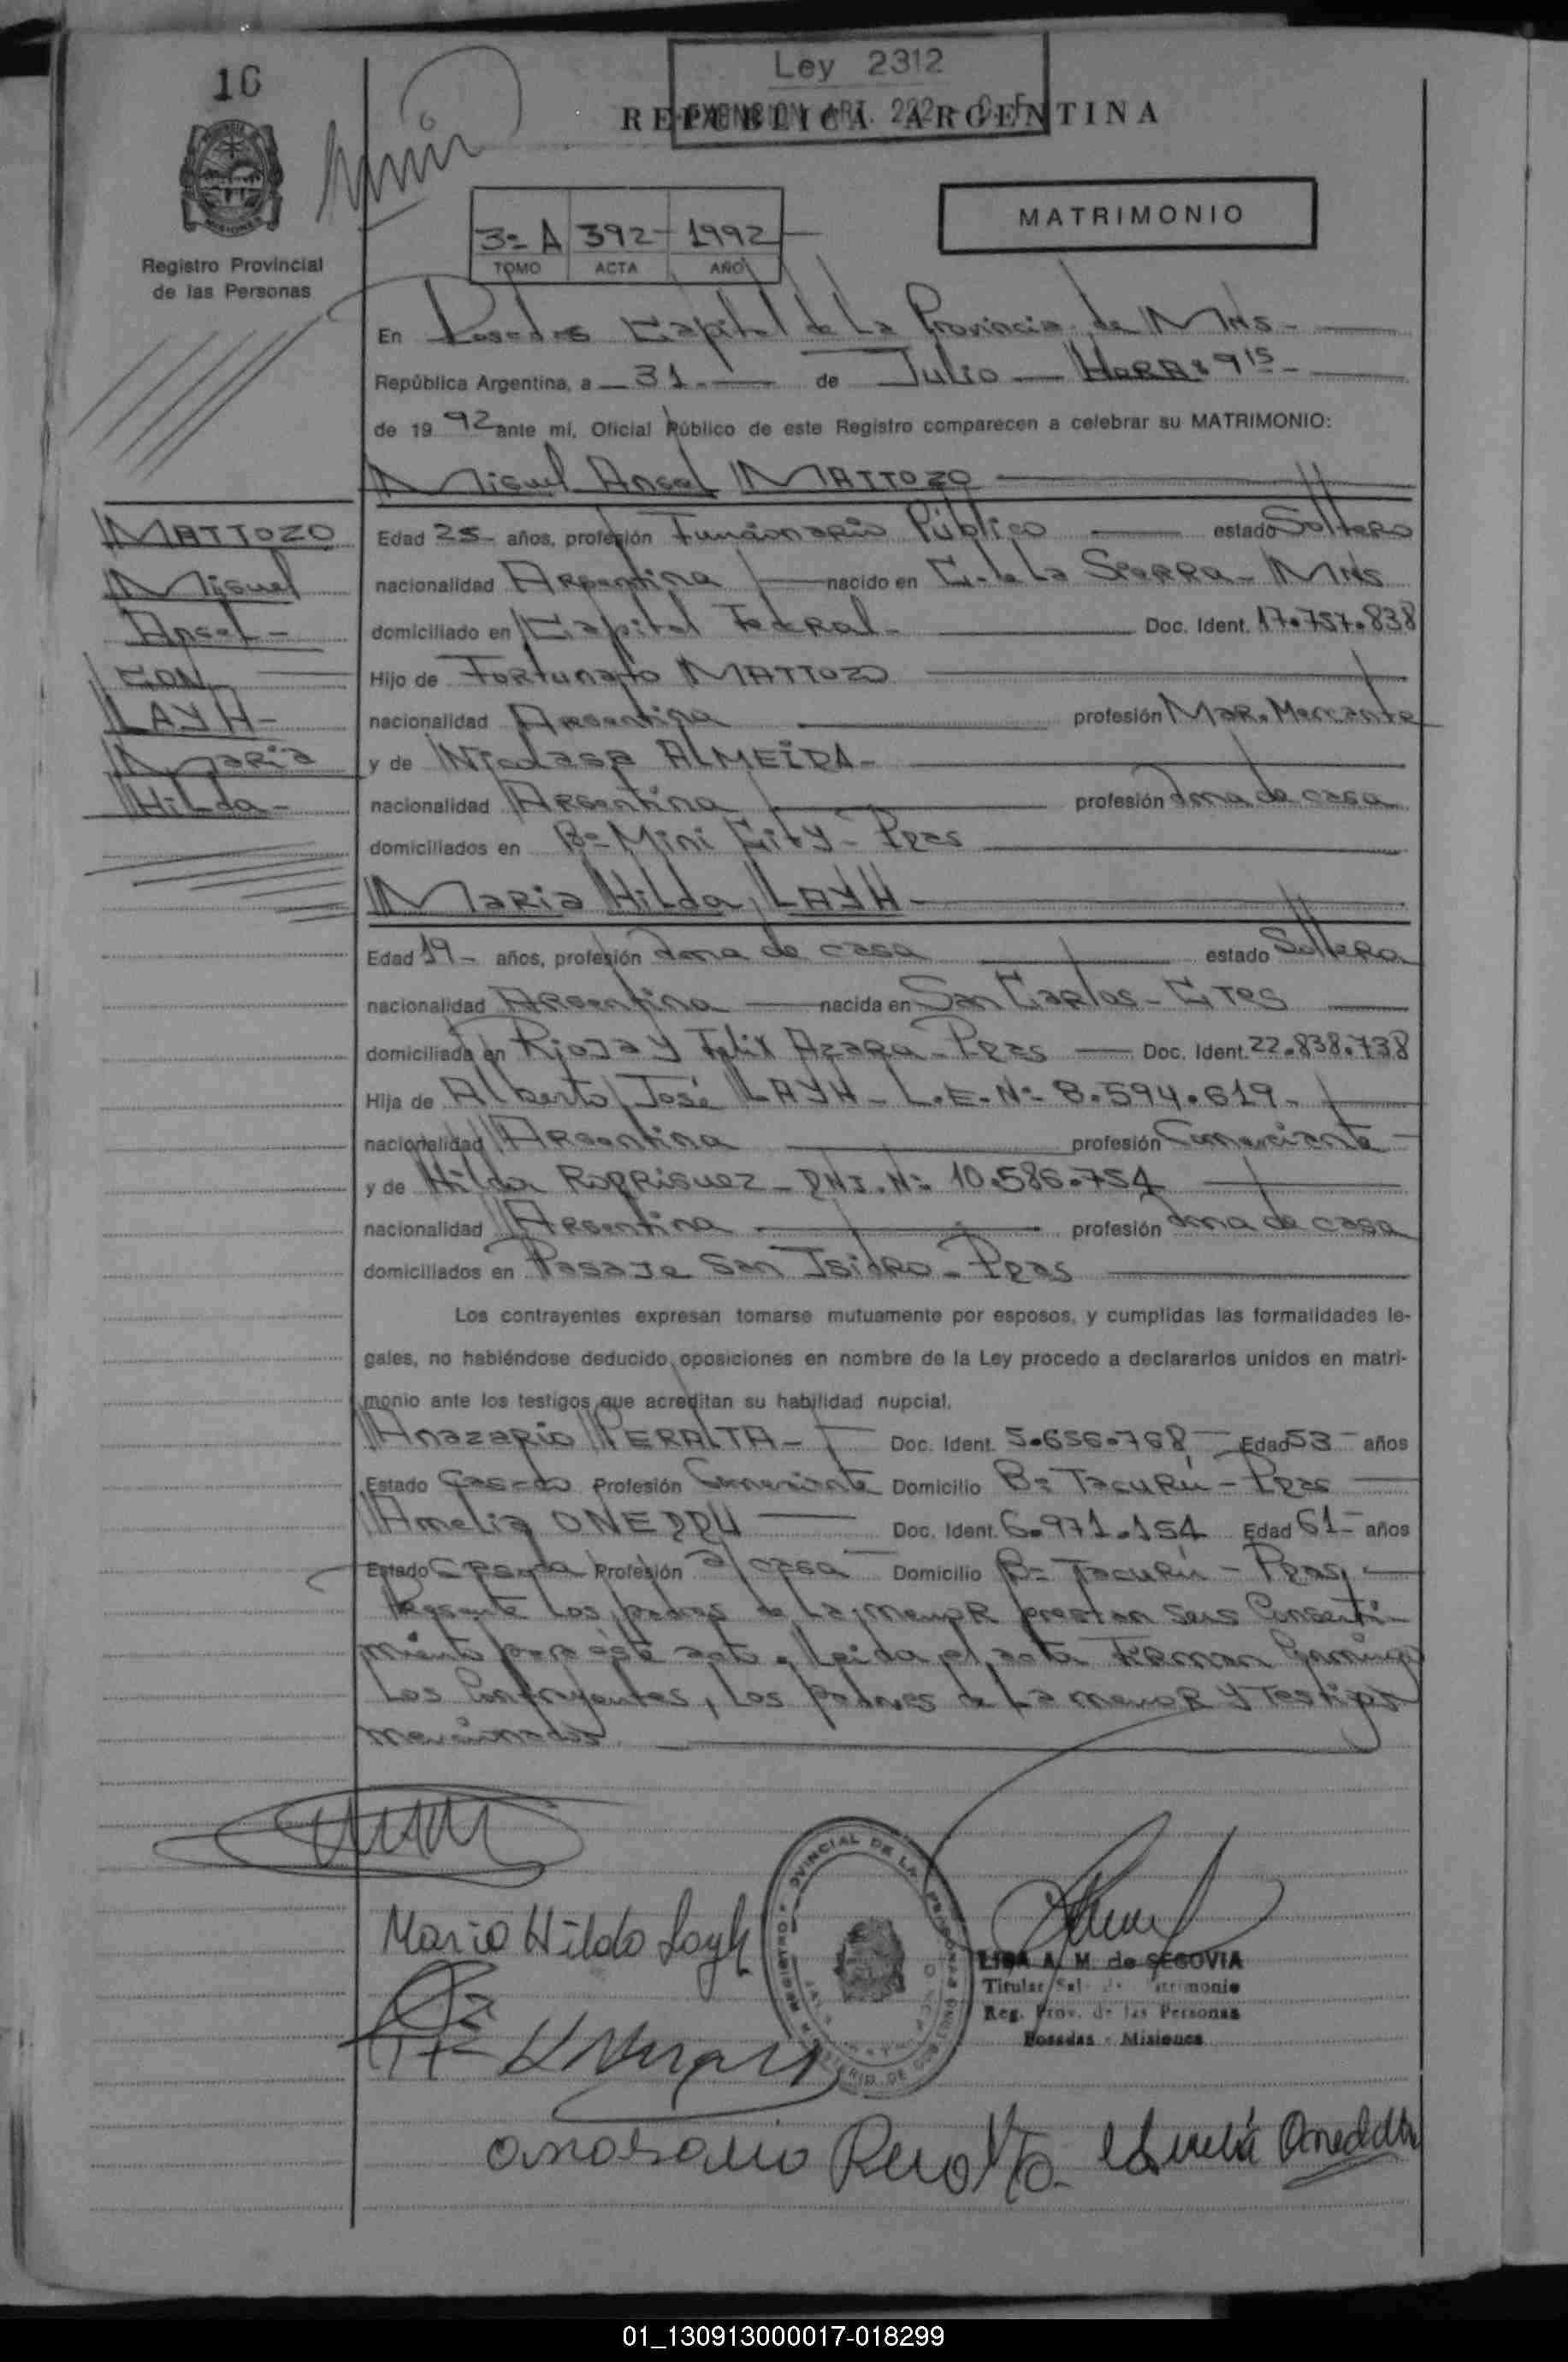 16
Ley 2312
REPUBLICA ARGENTINA
EXENCION ART. 222
MISIONES
Registro Provincial
de las Personas
3º A 392 1992
TOMO ACTA AÑO
MATRIMONIO
En Posadas Capital de La Provincia de Mnes-
República Argentina, a 31 de Julio HORA: 9 15
de 19 92 ante mí, Oficial Público de este Registro comparecen a celebrar su MATRIMONIO:
Miguel Angel MATTOZO
MATTOZO
Miguel
Angel-
CON
LAYH-
Maria
Hilda-
Edad 25 años, profesión Funcionario Público estado Soltero
nacionalidad Argentina nacido en C. de La Sierra - Mnes
domiciliado en Capital Federal- Doc. Ident. 17.757.838
Hijo de Fortunato MATTOZO
nacionalidad Argentina profesión Mar. Mercante
y de Nicolasa ALMEIDA-
nacionalidad Argentina profesión Ama de casa
domiciliados en Bº Mini City - Pdas
Maria Hilda LAYH-
Edad 19- años, profesión Ama de casa estado Soltera
nacionalidad Argentina nacida en San Carlos - Ctes
domiciliada en Rioja y Felix Azara - Pdas Doc. Ident. 22.838.738
Hija de Alberto José LAYH - L.E. Nº 8.594.619-
nacionalidad Argentina profesión Comerciante
y de Hilda Rodriguez - DNI. Nº 10.586.754
nacionalidad Argentina profesión Ama de casa
domiciliados en Pasaje San Isidro - Pdas
Los contrayentes expresan tomarse mutuamente por esposos, y cumplidas las formalidades le-
gales, no habiéndose deducido oposiciones en nombre de la Ley procedo a declararlos unidos en matri-
monio ante los testigos que acreditan su habilidad nupcial.
Anazario PERALTA- Doc. Ident. 5.656.768 Edad 53 años
Estado Casado Profesión Comerciante Domicilio Bº Tacurú - Pdas
Amelia ONEDDU Doc. Ident. 6.971.154 Edad 61 años
Estado Casada Profesión a/casa Domicilio Bº Tacurú - Pdas,
Presente Los padres de La menor prestan sus Consenti-
miento para éste acto. Leida el acta Firman Conmigo
Los Contrayentes, Los padres de La menor y Testigos
mencionados.
Maria Hilda Layh
REGISTRO PROVINCIAL DE LAS PERSONAS
LISA A. M. de SEGOVIA
Titular Matrimonio
Reg. Prov. de las Personas
Posadas - Misiones
anasario Peralta- Amelia Oneddu
01_130913000017-018299